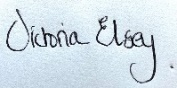 Victoria Elsey.